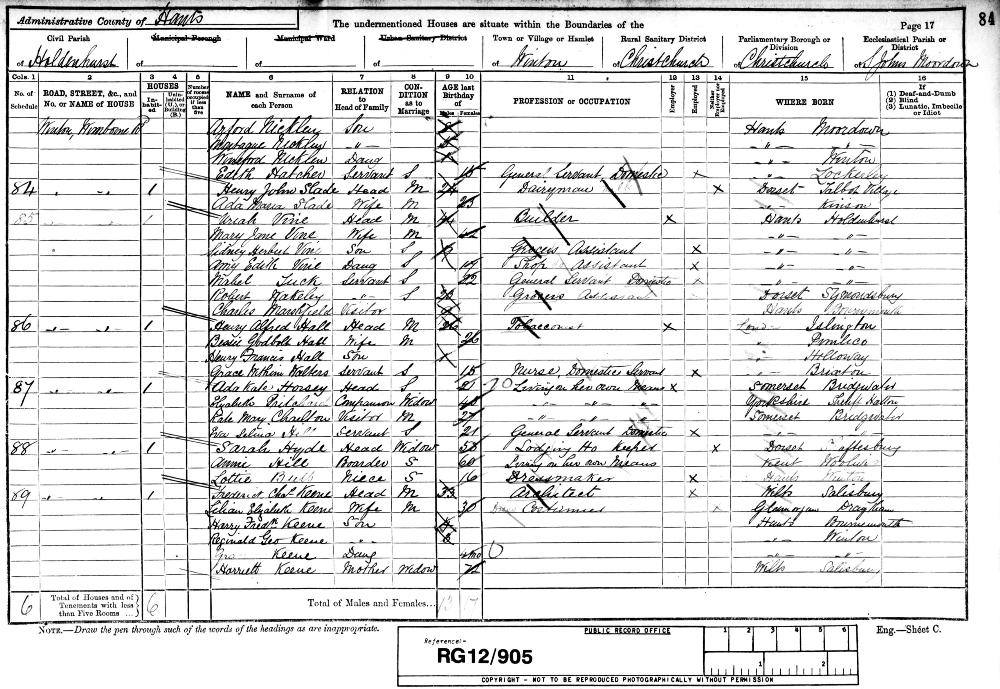 Administrative County of Hants
The undermentioned Houses are situate within the Boundaries of the
Page 17
84
Civil Parish
of Holdenhurst
Municipal Borough
of
Municipal Ward
of
Urban Sanitary District
of
Town or Village or Hamlet
of Winton
Rural Sanitary District
of Christchurch
Parliamentary Borough or Division
of Christchurch
Ecclesiastical Parish or District
of St Johns Moordown
Cols. 1 2 3 4 5 6 7 8 9 10 11 12 13 14 15 16
No. of Schedule
ROAD, STREET, &c., and No. or NAME of HOUSE
HOUSES
In-habit-ed
Uninhabited (U.), or Building (B.)
Number of rooms occupied if less than five
NAME and Surname of each Person
RELATION to Head of Family
CONDITION as to Marriage
AGE last Birthday of
Males Females
PROFESSION or OCCUPATION
Employer
Employed
Neither Employer nor Employed
WHERE BORN
If (1) Deaf-and-Dumb (2) Blind (3) Lunatic, Imbecile or Idiot
Winton, Wimborne Rd Arford Nickley Son Hants Moordown
Montague Nicklen -"- -"- -"-
Winifred Nicklen Daug -"- Winton
Edith Hatcher Servant S 15 General Servant Domestic X -"- Lockerley
84 " " 1 Henry John Slade Head M 24 Dairyman X Dorset Talbot Village
Ada Maria Slade Wife M 23 -"- Kinson
85 1 Uriah Vine Head M Builder X Hants Holdenhurst
Mary Jane Vine Wife M 42 -"- -"-
Sidney Herbert Vine Son S Grocers Assistant X -"- -"-
Amy Edith Vine Daug S 17 Shop Assistant X -"- -"-
Mabel Tuck Servant S 22 General Servant Domestic X
Robert Wakeley -"- S 23 Grocers Assistant Dorset Symondsbury
Charles Marshfield Visitor Hants Bournemouth
86 -"- -"- 1 Henry Alfred Hall Head M 26 Tobacconist X London Islington
Bessie Godbolt Hall Wife M 26 " Pimlico
Henry Francis Hall Son " Holloway
Grace Walters Servant S 15 Nurse, Domestic Servant X " Brixton
87 -"- -"- 1 Ada Kate Horsey Head S Living on her own Means X Somerset Bridgwater
Elizabeth Pritchard Companion Widow 48 -"- -"- Yorkshire
Kate Mary Charlton Visitor M 27 -"- -"- Somerset Bridgwater
Eva Selina Hill Servant S 21 General Servant Domestic X
88 -"- -"- 1 Sarah Hyde Head Widow Lodging Ho Keeper X Dorset Shaftesbury
Annie Hill Boarder S 60 Living on her own Means Kent
Lottie Niece S 16 Dressmaker X Hants Winton
89 -"- -"- 1 Frederick Chas Keene Head M 33 Architect X Wilts Salisbury
Lilian Elizabeth Keene Wife M 30 X Glamorgan
Harry Fredk Keene Son 4 Hants Bournemouth
Reginald Geo Keene -"- -"- Winton
Keene Daug -"- -"-
Harriett Keene Mother Widow 72 Wilts Salisbury
6 Total of Houses and of Tenements with less than Five Rooms ... 6
Total of Males and Females... 13 17
NOTE.—Draw the pen through such of the words of the headings as are inappropriate.
Eng.—Sheet C.
Reference:-
RG12/905
PUBLIC RECORD OFFICE
1 2 3 4 5 6
1 2
COPYRIGHT - NOT TO BE REPRODUCED PHOTOGRAPHICALLY WITHOUT PERMISSION